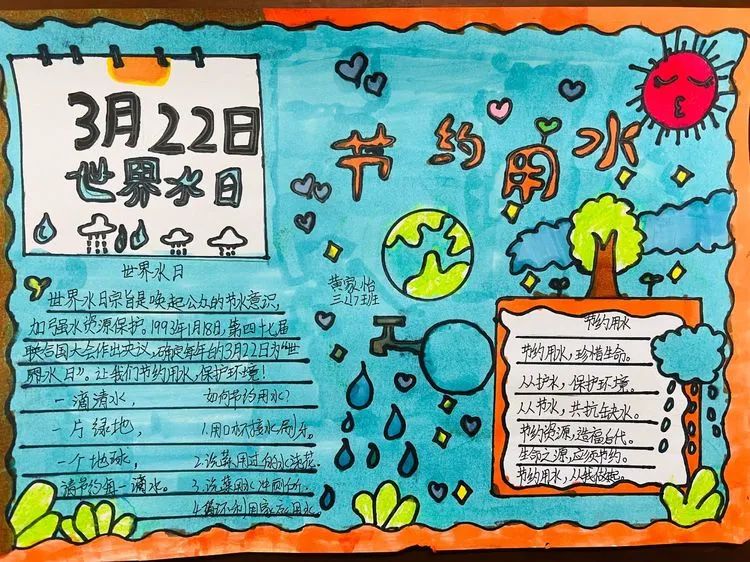 3月22日
世界水日
节约用水
世界水日
世界水日宗旨是唤起公众的节水意识,
加强水资源保护,1993年1月18日,第四十七届
联合国大会作出决议,确定每年的3月22日为“世
界水日”。让我们节约用水,保护环境!
一滴清水,
一片绿地,
一个地球,
请节约每一滴水。
如何节约用水?
1.用口杯接水刷牙。
2.洗菜用过的水浇花。
3.洗菜用水冲厕所。
4.循环利用家庭用水
黄家怡
三小2班
节约用水
节约用水,珍惜生命。
从护水,保护环境。
从人节水,共抗缺水。
节约资源,造福后代。
生命之源,应须节约。
节约用水,从我做起。